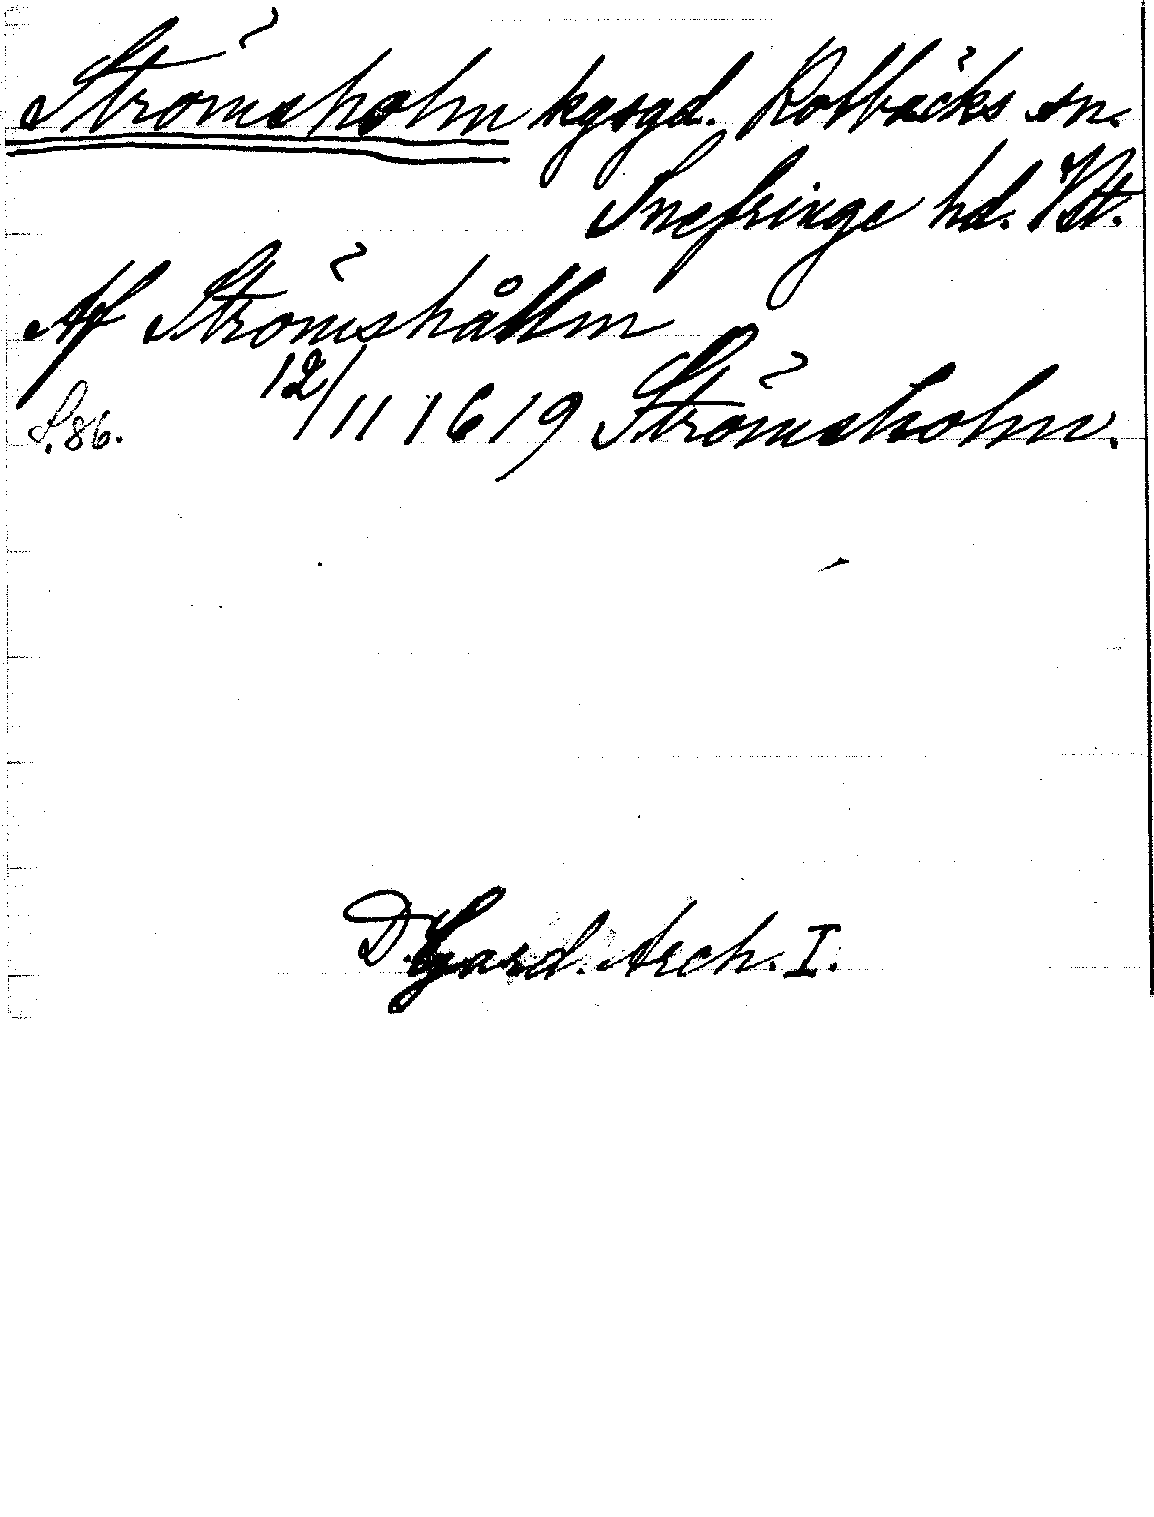 Strömsholm kgsgd. Kolbäcks sn.
Snefringe hd. Vst.
Af Strömshållm
12/11 1619 Strömsholm.
S. 86.
D. Gard. Arch. I.